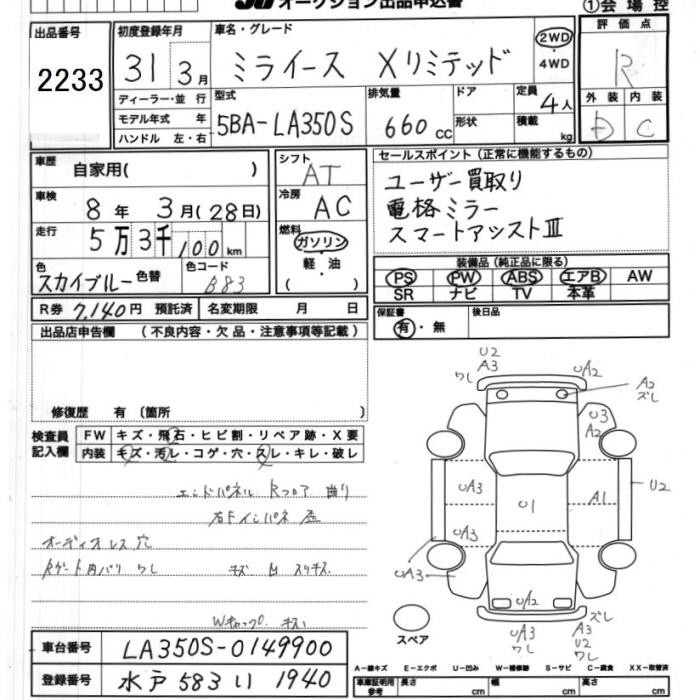 オークション出品申込書
①会場控
出品番号
2233
初度登録年月
31年 3月
車名・グレード
ミライース Xリミテッド
2WD
・
4WD
評価点
R
ディーラー・並 行
モデル年式 年
ハンドル 左・右
型式
5BA-LA350S
排気量
660 CC
ドア
形状
定員
4人
積載
kg
外装 内装
D C
車歴
自家用( )
車検
8年 3月(28日)
走行
5万3千100km
色
スカイブルー 色替
色コード
B83
シフト
AT
冷房
AC
燃料
ガソリン
・
軽・油
( )
セールスポイント(正常に機能するもの)
ユーザー買取り
電格ミラー
スマートアシストⅢ
装備品(純正品に限る)
PS PW ABS エアB AW
SR ナビ TV 本革
R券 7,140円 預託済 名変期限 月 日
保証書
有・無
後日品
出品店申告欄 (不良内容・欠品・注意事項等記載)
修復歴 有(箇所 )
検査員
記入欄
FW キズ・飛石・ヒビ割・リペア跡・X要
内装 キズ・汚レ・コゲ・穴・スレ・キレ・破レ
エンドパネル Rフロア 曲り
オーディオレス穴
U2
A3
ワレ
UA2
A2
ズレ
U3
A2
UA3
U1
A1
U2
UA3
UA3
UA2
ズレ
UA3
ワレ
A3
U2
ワレ
スペア
車台番号 LA350S-0149900
登録番号 水戸 583 い 1940
A-線キズ E-エクボ U-凹み W-補修跡 S-サビ C-腐食 XX-取替済
車庫証明用
参考
長さ cm 幅 cm 高さ cm